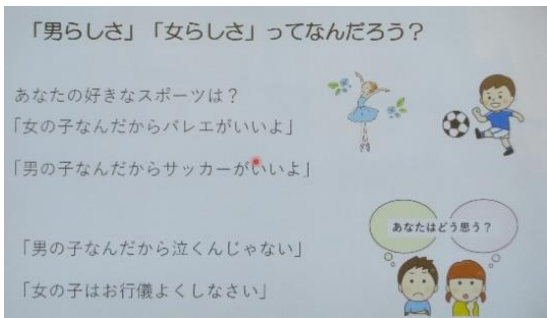 「男らしさ」「女らしさ」ってなんだろう？
あなたの好きなスポーツは？
「女の子なんだからバレエがいいよ」
「男の子なんだからサッカーがいいよ」
あなたはどう思う？
「男の子なんだから泣くんじゃない」
「女の子はお行儀よくしなさい」